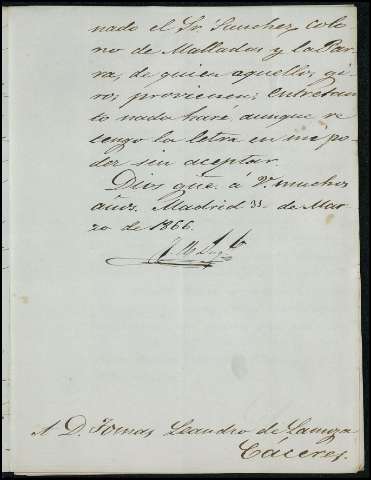 nado el Sr. Sanchez, colo
no de Malladas y la Par
ra, de quien aquellos gi
ros provienen; entretan
to nada haré aunque re
tengo la letra en mi po-
der sin aceptar.
Dios gue. á V. muchos
años. Madrid 31 de Mar
zo de 1866.
A D. Tomas Leandro de
Cáceres.